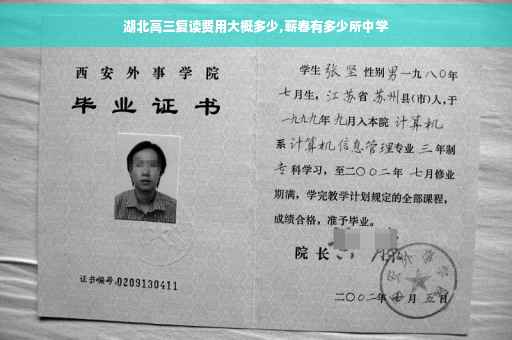 湖北高三复读费用大概多少,蕲春有多少所中学
西安外事学院
毕业证书
证书编号:0209130411
学生 张坚 性别 男 一九八〇年
七月生, 江苏省 苏州县(市)人, 于
一九九九年 九月入本院 计算机
系 计算机信息管理专业 三 年制
专科学习, 至二〇〇二年 七月修业
期满, 学完教学计划规定的全部课程,
成绩合格, 准予毕业。
院长
二〇〇二年 月 五日